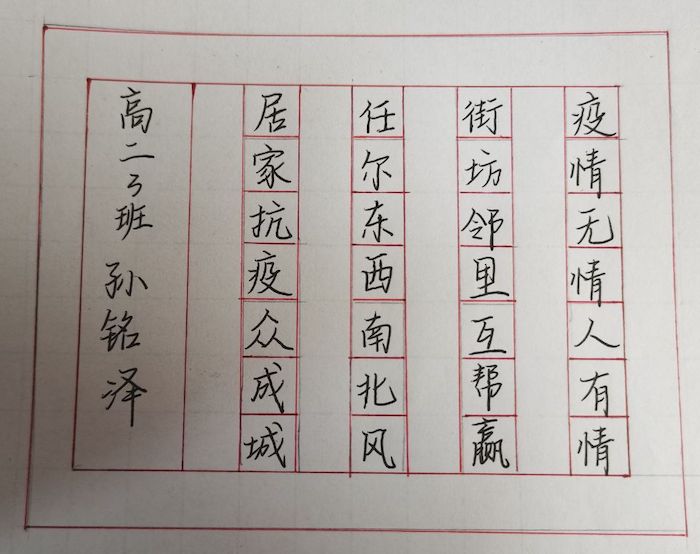 疫情无情人有情
街坊邻里互帮赢
任尔东西南北风
居家抗疫众成城
高二3班 孙铭泽